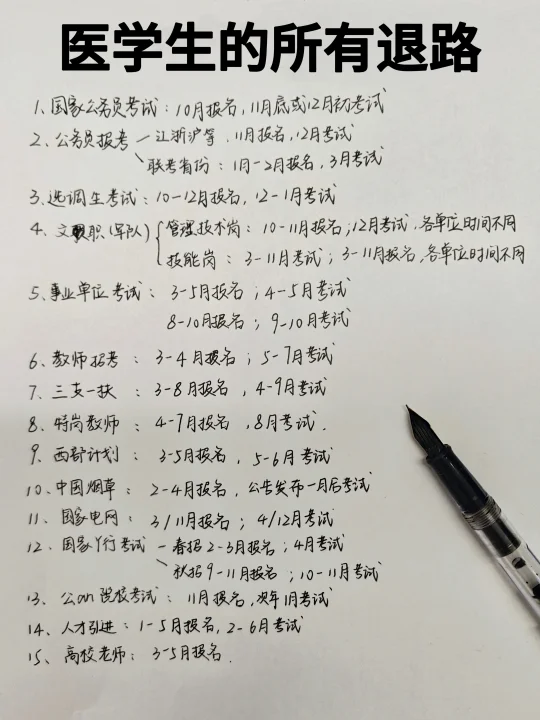 医学生的所有退路
1、国家公务员考试：10月报名，11月底或12月初考试
2、公务员报考－江浙沪等、11月报名，12月考试
联考省份：1月-2月报名，3月考试
3、选调生考试：10-12月报名，12-1月考试
4、文职(军队) 管理技术岗：10-11月报名；12月考试，各单位时间不同
技能岗：3-11月考试；3-11月报名，各单位时间不同
5、事业单位考试：3-5月报名；4-5月考试
8-10月报名；9-10月考试
6、教师招考：3-4月报名；5-7月考试
7、三支一扶：3-8月报名，4-9月考试
8、特岗教师：4-7月报名，8月考试.
9、西部计划：3-5月报名，5-6月考试
10、中国烟草：2-4月报名，公告发布一月后考试
11、国家电网：3/11月报名；4/12月考试
12、国家丫行考试－春招2-3月报名；4月考试
秋招9-11月报名；10-11月考试
13、公an院校考试：11月报名，次年1月考试
14、人才引进：1-5月报名，2-6月考试
15、高校老师：3-5月报名.